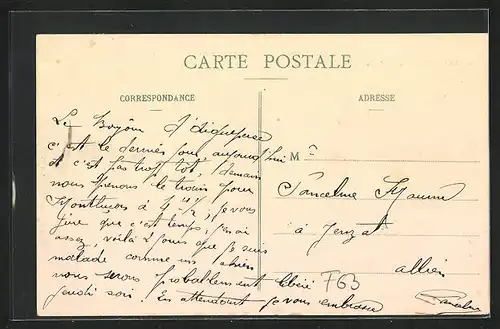 CARTE POSTALE
CORRESPONDANCE
ADRESSE
Le Bonjour d'Aigueperse
c'est le dernier jour aujourd'hui
et c'est pas trop tôt, demain
nous prenons le train pour
Montluçon à 4 h ½, je vous
jure que c'est temps, j'en ai
assez, voilà 2 jours que je suis
malade comme un chien
nous serons probablement libéré
jeudi soir. En attendant je vous embrasse
M
à Jenzat
allier
F63